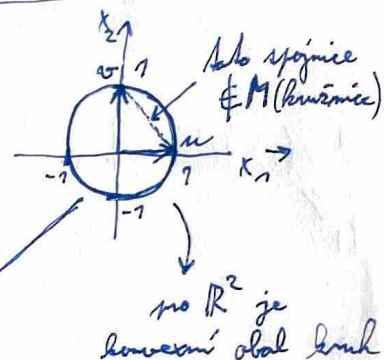 x₂
v 1
tato spojnice
∉ M (kružnice)
u
-1
1
x₁
-1
pro ℝ² je
konvexní obal kruh